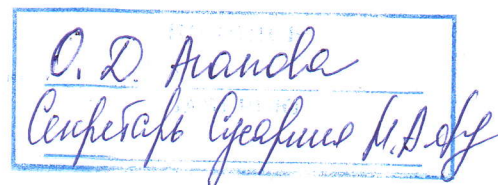 О. Д. Агапова
Секретарь Сусарина М.А.